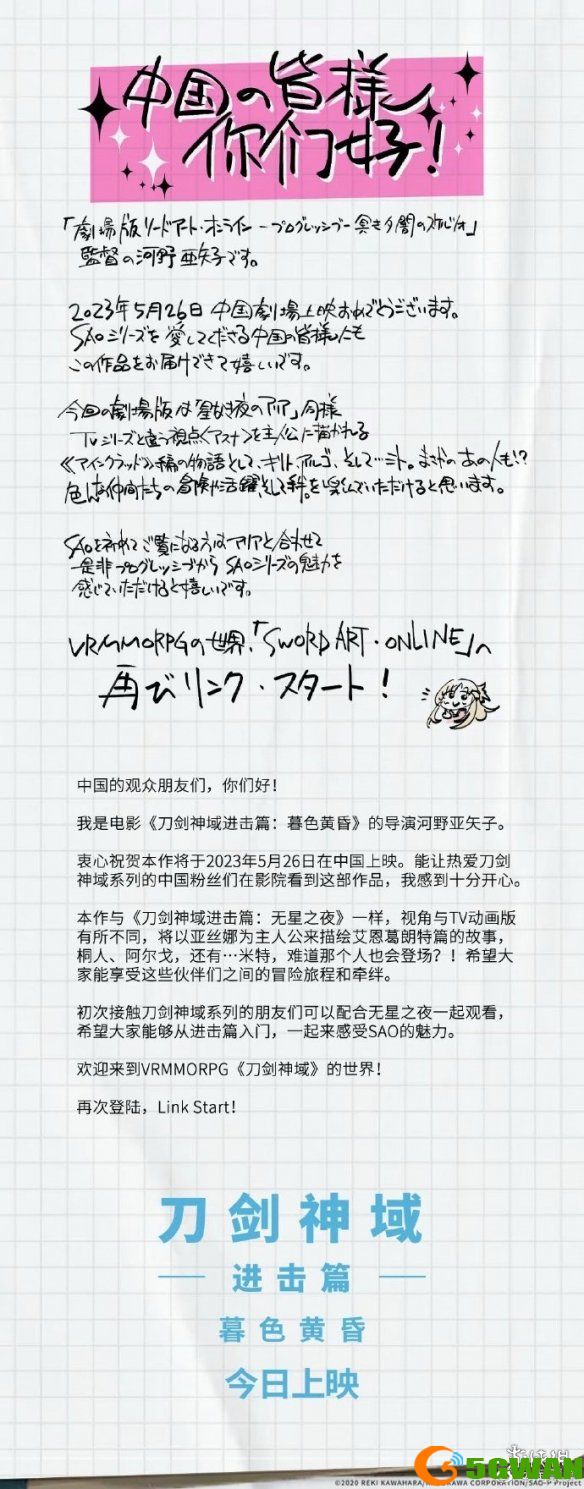 中国の皆様
你们好！
「劇場版ソードアート・オンライン -プログレッシブ- 冥き夕闇のスケルツォ」
監督の河野亜矢子です。
2023年5月26日 中国劇場上映おめでとうございます。
SAOシリーズを愛してくださる中国の皆様にも
この作品をお届けできて嬉しいです。
今回の劇場版は「星なき夜のアリア」同様
TVシリーズと違う視点〈アスナ〉を主人公に描かれる
《アインクラッド》編の物語として、キリト、アルゴ、そして…ミト。まさかのあの人も!?
色んな仲間たちの冒険や活躍、そして絆。を楽しんでいただけると思います。
SAOを初めてご覧になる方はアリアと合わせて
是非プログレッシブから SAOシリーズの魅力を
感じていただけると嬉しいです。
VRMMORPGの世界、「SWORD ART・ONLINE」へ
再びリンク・スタート！
中国的观众朋友们，你们好！
我是电影《刀剑神域进击篇：暮色黄昏》的导演河野亚矢子。
衷心祝贺本作将于2023年5月26日在中国上映。能让热爱刀剑
神域系列的中国粉丝们在影院看到这部作品，我感到十分开心。
本作与《刀剑神域进击篇：无星之夜》一样，视角与TV动画版
有所不同，将以亚丝娜为主人公来描绘艾恩葛朗特篇的故事，
桐人、阿尔戈，还有…米特，难道那个人也会登场？！希望大
家能享受这些伙伴们之间的冒险旅程和牵绊。
初次接触刀剑神域系列的朋友们可以配合无星之夜一起观看，
希望大家能够从进击篇入门，一起来感受SAO的魅力。
欢迎来到VRMMORPG《刀剑神域》的世界！
再次登陆，Link Start！
刀剑神域
进击篇
暮色黄昏
今日上映
5GWAN
©2020 REKI KAWAHARA/KADOKAWA CORPORATION/SAO-P Project